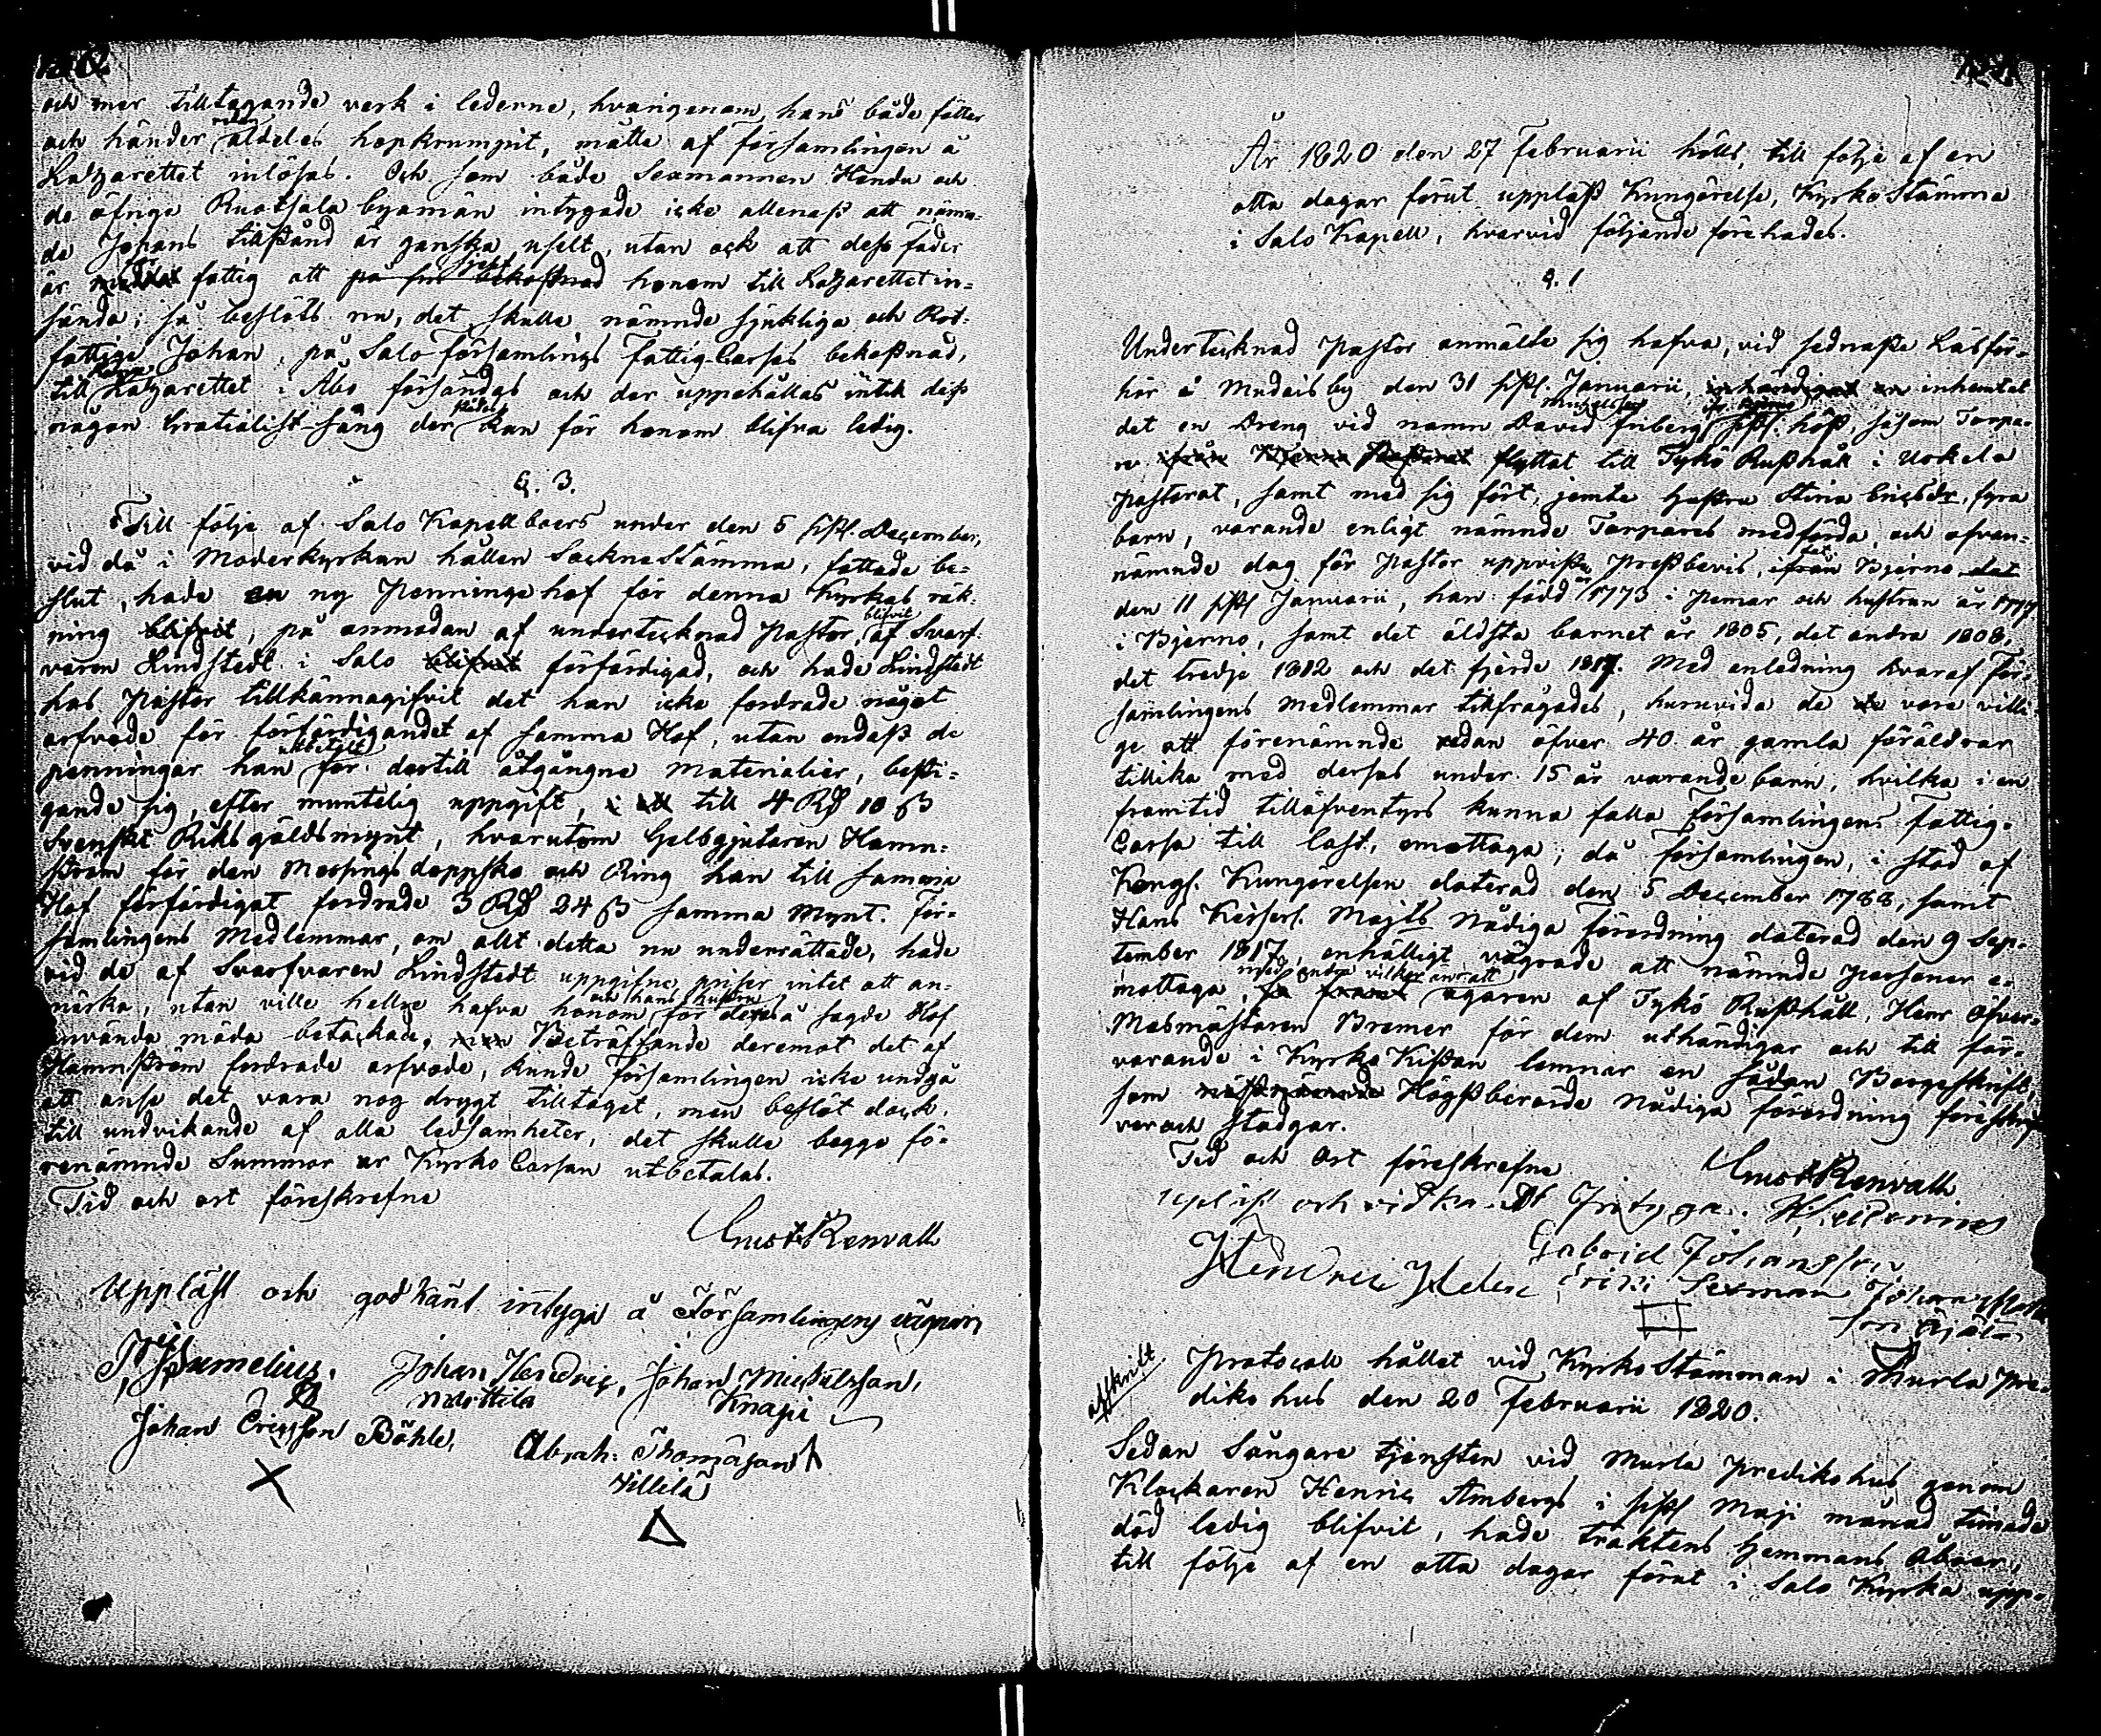 och mer tilltagande verk i lederne, hvarigenom hans både fötter
och händer redan aldeles hopkrumpit, måtte af församlingen å
Lazarettet inlösas. Och som både Sexmannen Hendr och
de öfrige Ruotsala byamän intygade icke allenast att nämn-
de Johans tillstånd är ganska uselt, utan ock att dess fader
är för fattig att sjelf honom till Lazarettet in-
sända; så beslöts nu, det skulle nämnde sjukliga och Rot-
fattige Johan, på Salo församlings fattig-Cassas bekostnad,
till Lazarettet i Åbo försändas och der uppehållas intill dess
någon Gratialist-säng derstädes kan för honom blifva ledig.
§. 3.
Till följe af Salo Kapellboers under den 5 sistl. December,
vid då i Moderkyrkan hållen Sockne Stämma, fattade be-
slut, hade en ny Penningehof för denna Kyrkas räk-
ning, på anmodan af undertecknad Pastor, blifvit af Svarf-
varen Lindstedt i Salo förfärdigad, och hade Lindstedt
hos Pastor tillkännagifvit det han icke fordrade något
arfvode för förfärdigandet af samma Hof, utan endast de
penningar han utbetalt för dertill åtgångne materialier, besti-
gande sig, efter muntelig uppgift, till 4 Rd 10 ß
Svenskt Riksgäldsmynt, hvarutom Gelbgjutaren Hamn-
ström för den Messings doppsko och Ring han till samma
Hof förfärdigat fordrade 3 Rd 24 ß samma mynt. För-
samlingens Medlemmar, om allt detta nu underrättade, hade
vid de af Svarfvaren Lindstedt uppgifne priser intet att an-
märka, utan ville hellre hafva honom och hans hustru för derå sagde Hof
använda möda betackade. Beträffande deremot det af
Hamnström fordrade arfvode, kunde Församlingen icke undgå
att anse det vara nog drygt tilltaget, men beslöt dock,
till undvikande af alla ledsamheter, det skulle begge fö-
renämnde Summor ur Kyrko Cassan utbetalas.
Tid och ort föreskrefne
Gust. Renvall
Uppläst och godkänt intyga å Församlingens vägnar
Johan Hendric, Johan Mickelsson,
Mattila Knapi
Johan Ericsson Böhle, Abrah: Thomasson
Villilä
År 1820 den 27 Februarii hölls, till följe af en
otta dagar förut uppläst Kungörelse, Kyrko Stämma
i Salo Kapell, hvarvid följande förehades.
§. 1
Undertecknad Pastor anmälte sig hafva, vid sednaste Läsför-
hör å by den 31 sistl. Januarii, inhemtat
det en Dreng vid namn David Friberg sistl. höst, såsom Torpa-
re flyttat till Tykö Rusthåll i Uskela
Pastorat, samt med sig fört, jemte hustru Stina Ericsdr, fyra
barn, varande enligt nämnde Torpares medförda, och ofvan-
nämnde dag för Pastor uppviste Prestbevis, Bjerno
den 11 sistl Januarii, han född år 1773 i Pemar och hustrun år 1777
i Bjerno, samt det äldsta barnet år 1805, det andra 1808,
det tredje 1812 och det fjerde 1817. Med anledning hvaraf För-
samlingens medlemmar tillfrågades, huruvida de vore villi-
ge att förenämnde redan öfver 40 år gamla föräldrar
tillika med derfas under 15 år varande barn, hvilka i en
framtid tilläfventyrs kunna falla Församlingens Fattig-
Cassa till last, emottaga; då församlingen, i stöd af
Kongl. Kungörelsen daterad den 5 December 1788, samt
Hans Keiserl. Majts Nådiga förordning daterad den 9 Sep-
tember 1817, enhälligt vägrade att nämnde personer e-
mottaga, med andra vilkor än att ägaren af Tykö Rusthåll, Herr Öfver-
Masmästaren Bremer för dem uthändigar och till för-
varande i Kyrko Kistan lemnar en sådan Borgesskrift,
som Högstberörde Nådiga förordning föreskrif-
ver och stadgar.
Tid och Ort föreskrefne
Gust. Renvall
Gabriel Johansson
Sexman
Afskrift
Protocoll hållet vid Kyrko Stämman i Murla Pre-
diko hus den 20 Februarii 1820.
Sedan Sångare tjensten vid Murla Predikohus genom
Klockaren Henric Ambergs i sistl Maji månad timade
död ledig blifvit, hade traktens Hemmans Åboer,
till följe af en otta dagar förut i Salo Kyrka upp-